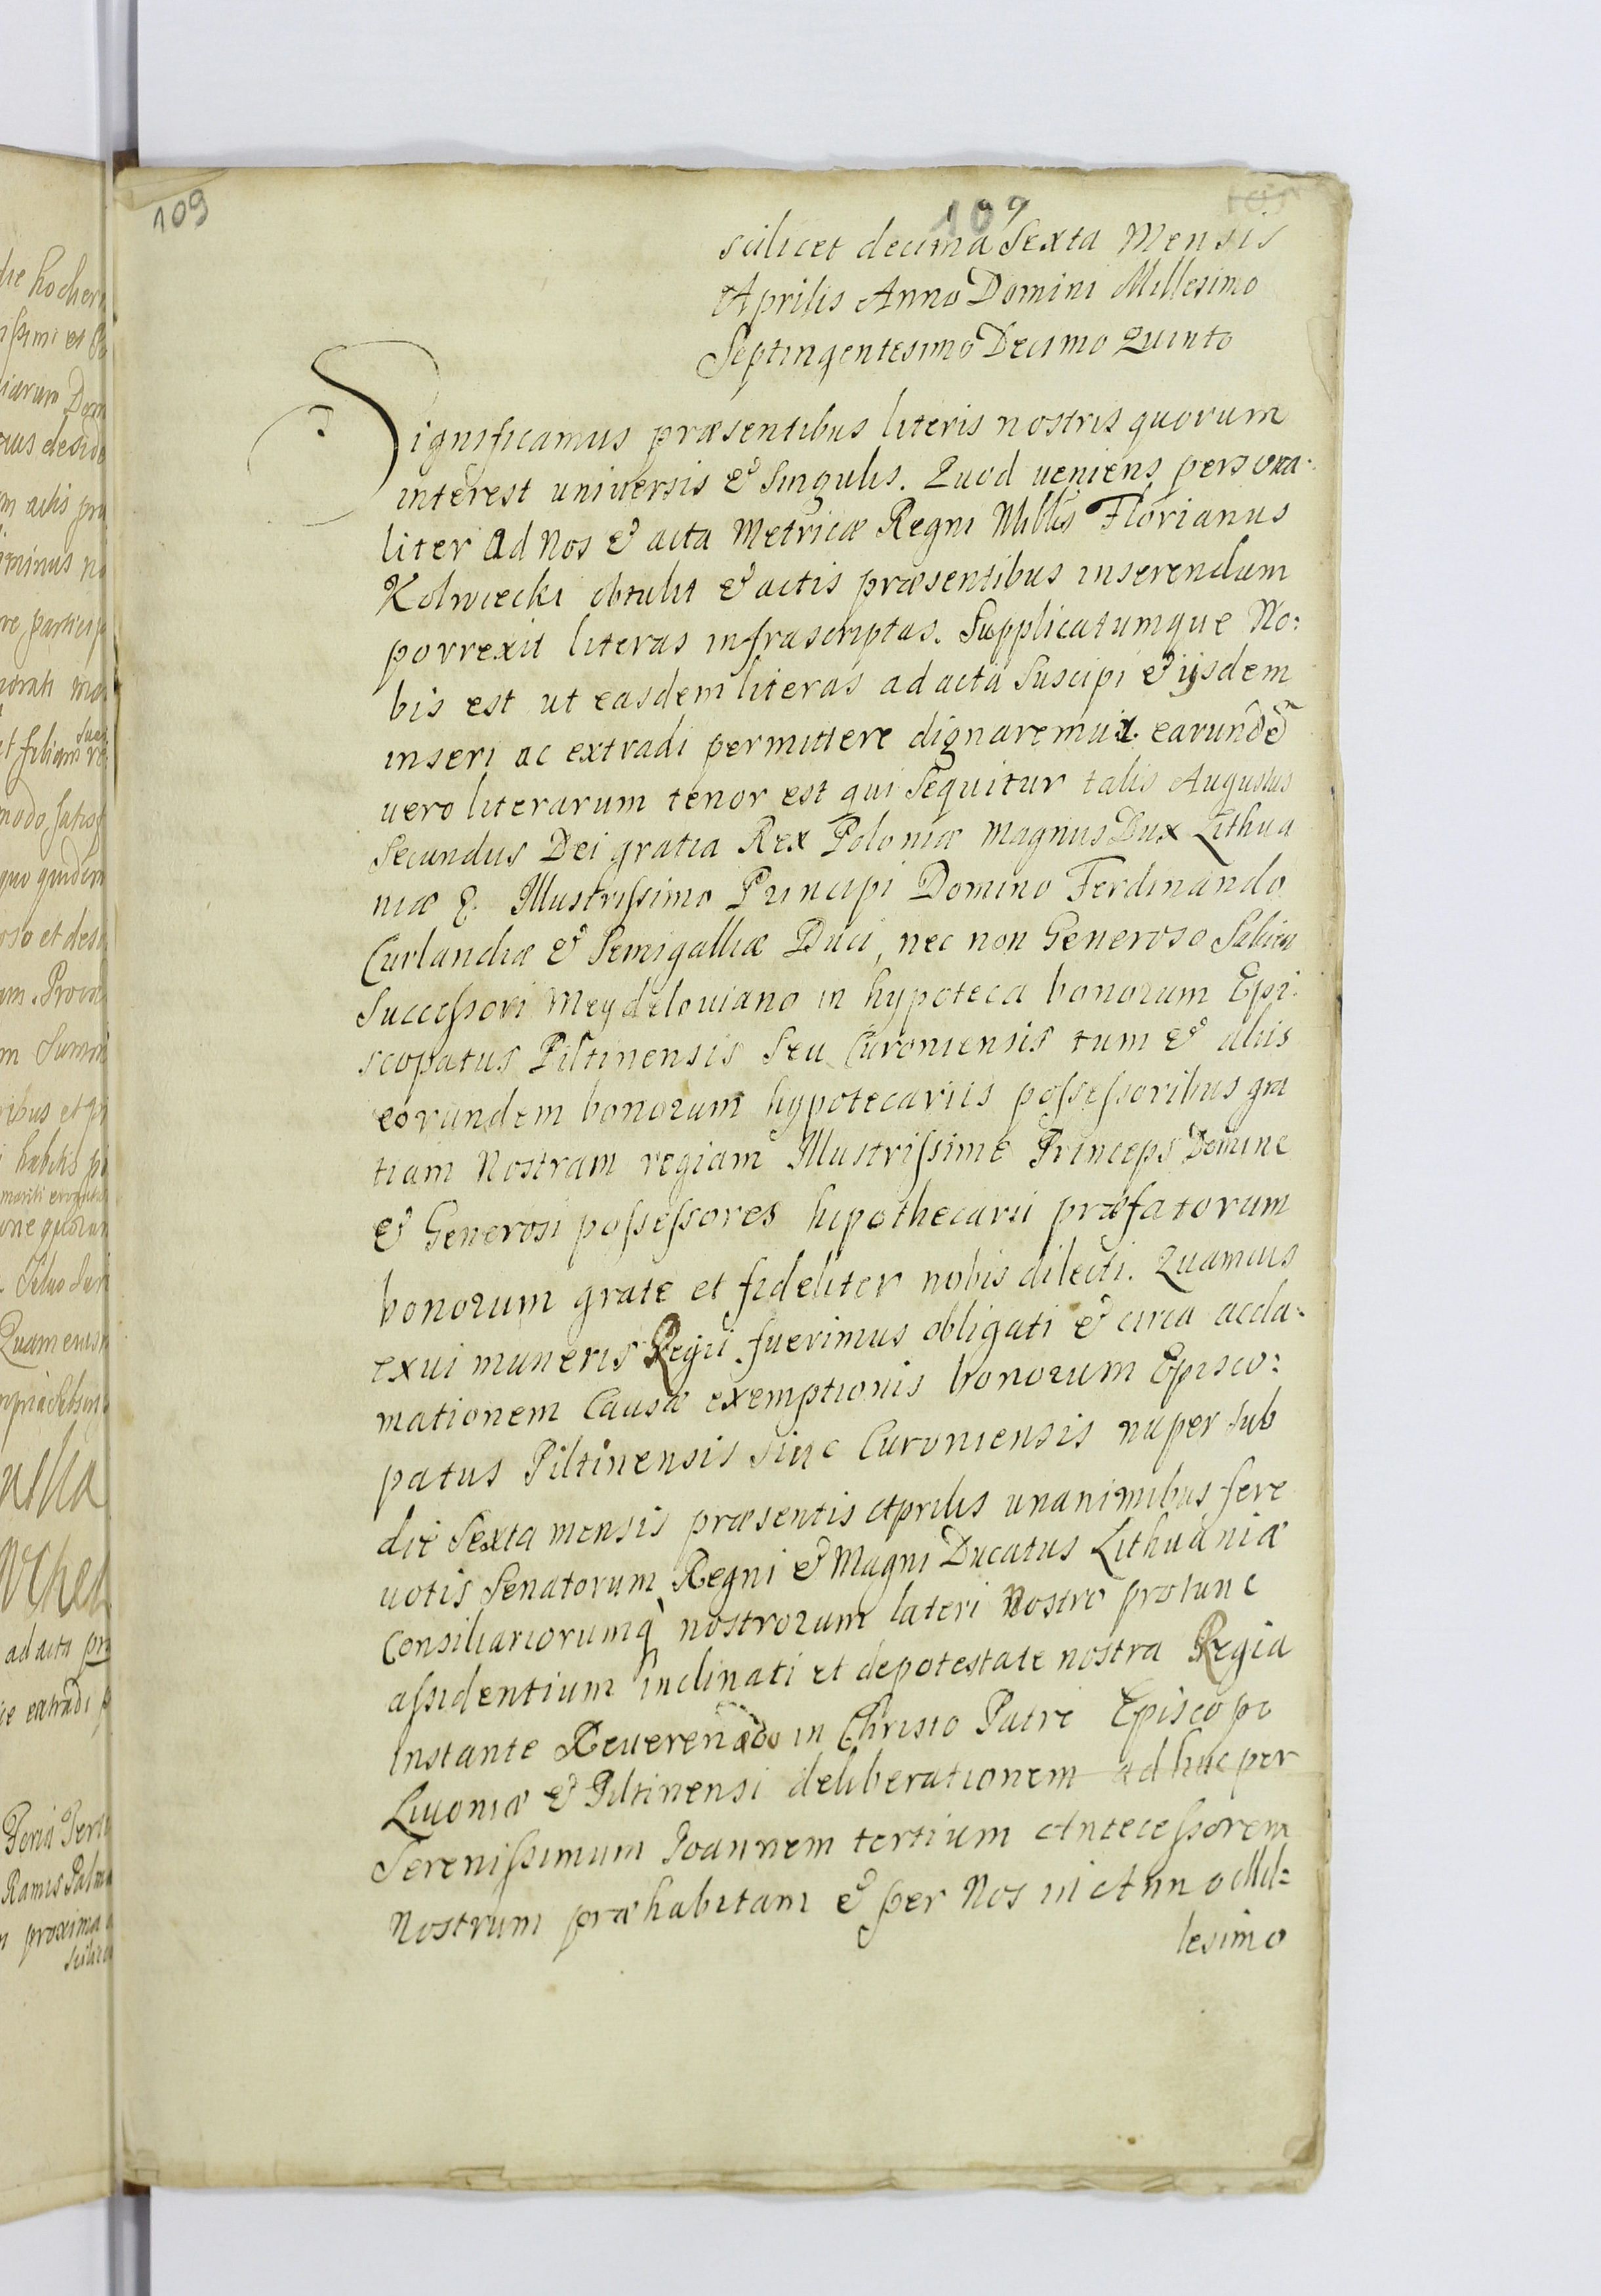 109
109
105
scilicet decima Sexta Mensis
Aprilis Anno Domini Millesimo
Septingentesimo Decimo Quinto
Significamus præsentibus literis nostris quorum
interest universis & Singulis. Quod ueniens persona:
liter ad Nos & acta Metricæ Regni Nobilis Florianus
Kolwiecki obtulit & actis præsentibus inserendum
porrexit literas infrascriptas. Supplicatumque No:
bis est ut easdem literas ad acta Suscipi & ijsdem
inseri ac extradi permittere dignaremur. earundē
uero literarum tenor est qui Sequitur talis Augustus
Secundus Dei gratia Rex Poloniæ Magnus Dux Lithua
niæ &. Illustrissimo Principi Domino Ferdinando
Curlandiæ & Semigalliæ Duci, nec non Generoso
Successori Meydelouiano in hypoteca bonorum Epi:
scopatus Piltinensis Seu Curoniensis tum & aliis
eorundem bonorum hypotecariis possessoribus gra
tiam Nostram regiam Illustrissime Princeps Domine
& Generosi possessores hipothecarii præfatorum
bonorum grate et fideliter nobis dilecti. Quamuis
ex ui muneris Regii fuerimus obligati & circa accla:
mationem Causæ exemptionis bonorum Episco:
patus Piltinensis siue Curoniensis nuper sub
die Sexta mensis præsentis Aprilis unanimibus fere
uotis Senatorum Regni & Magni Ducatus Lithuaniæ
Consiliariorumq̀ nostrorum lateri Nostro protunc
assidentium inclinati et de potestate nostra Regia
instante Reuerendo in Christo Patre Episcopo
Liuoniæ & Piltinensi deliberationem ad huc per
Serenissimum Joannem tertium Antecessorem
Nostrum præhabitam & per Nos in Anno Mil:
lesimo